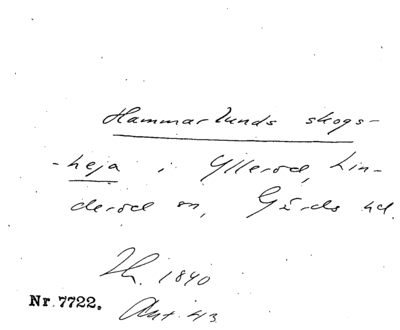 Hammarlunds skogs-
-heja i Ylleröd, Lin-
deröd sn, Gärds hd.
Th. 1840
Nr. 7722. Ant. 43